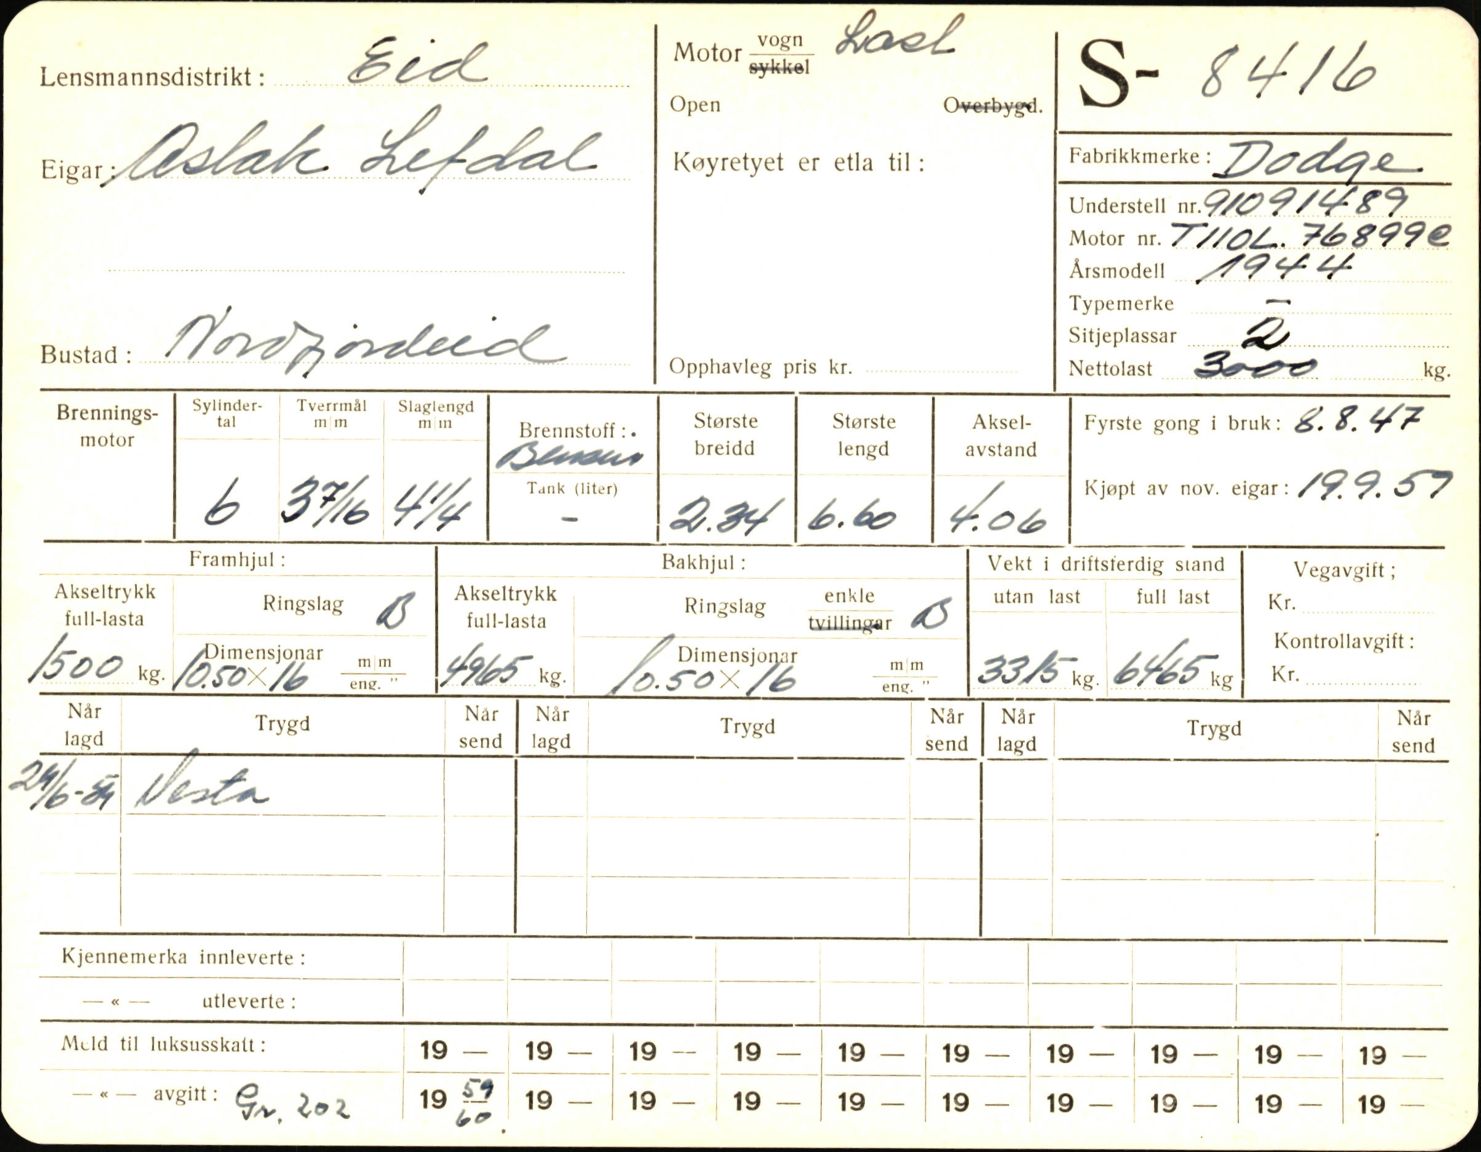 Lensmannsdistrikt: Eid
Eigar: Aslak Lefdal
Bustad: Nordfjordeid
Motor vogn sykkel Last
Open Overbygd.
Køyretyet er etla til:
Opphavleg pris kr.
S- 8416
Fabrikkmerke: Dodge
Understell nr. 91091489
Motor nr. T110L. 76899C
Årsmodell 1944
Typemerke —
Sitjeplassar 2
Nettolast 3000 kg.
Brennings-
motor
Sylinder-
tal
6
Tverrmål
m|m
3 7/16
Slaglengd
m|m
4 1/4
Brennstoff:
Bensin
Tank (liter)
-
Største
breidd
2.34
Største
lengd
6.60
Aksel-
avstand
4.06
Fyrste gong i bruk: 8.8.47
Kjøpt av nov. eigar: 19.9.59
Framhjul:
Akseltrykk
full-lasta
1500 kg.
Ringslag B
Dimensjonar
10.50 × 16 m|m eng. "
Bakhjul:
Akseltrykk
full-lasta
4965 kg.
Ringslag enkle tvillingar B
Dimensjonar
10.50 × 16 m|m eng. "
Vekt i driftsferdig stand
utan last full last
3315 kg. 6465 kg
Vegavgift;
Kr.
Kontrollavgift:
Kr.
Når lagd Trygd Når send Når lagd Trygd Når send Når lagd Trygd Når send
24/6-59 Vesta
Kjennemerka innleverte:
— « — utleverte:
Meld til luksusskatt: 19 — 19 — 19 — 19 — 19 — 19 — 19 — 19 — 19 — 19 —
— « — avgitt: Gr. 202 19 59/60. 19 — 19 — 19 — 19 — 19 — 19 — 19 — 19 — 19 —